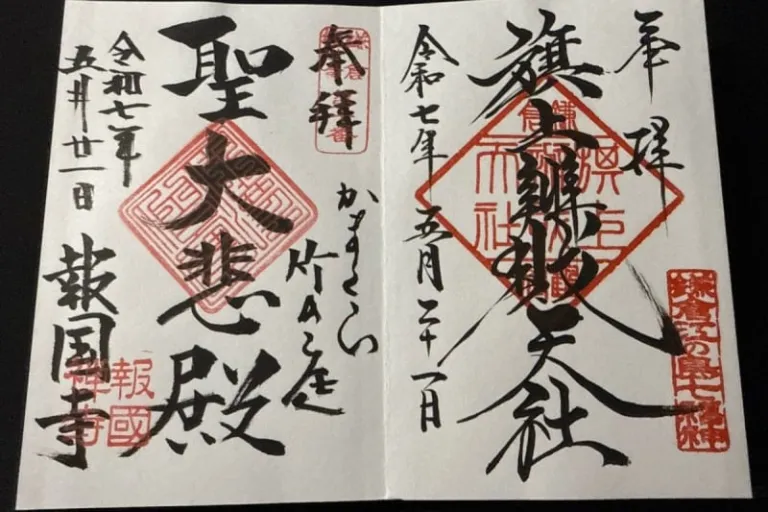 奉拝
旗上辨財天社
令和七年五月二十一日
鎌倉江の島七福神
奉拝
聖大悲殿
かまくら
竹の庭
令和七年
五月廿一日
報国寺
報國
禅寺